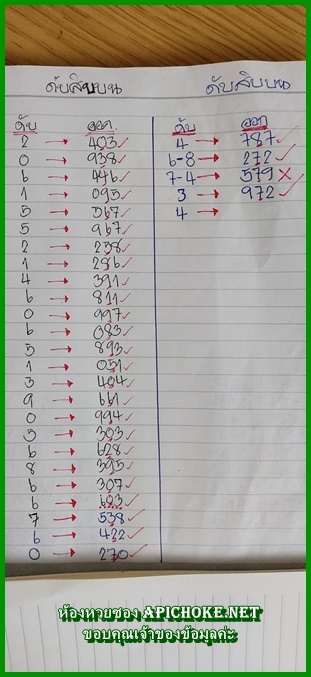 ดับสิบบน
ดับ ออก
2 → 403 ✓
0 → 938 ✓
6 → 446 ✓
1 → 095 ✓
5 → 367 ✓
5 → 967 ✓
2 → 258 ✓
1 → 286 ✓
4 → 391 ✓
6 → 811 ✓
0 → 997 ✓
6 → 083 ✓
5 → 893 ✓
1 → 051 ✓
3 → 404 ✓
9 → 661 ✓
0 → 994 ✓
5 → 303 ✓
6 → 628 ✓
8 → 395 ✓
6 → 307 ✓
6 → 603 ✓
7 → 538 ✓
6 → 422 ✓
0 → 270 ✓
ดับสิบบน
ดับ ออก
4 → 787 ✓
6-8 → 272 ✓
7-4 → 579 ✗
3 → 972 ✓
4 →
ห้องหวยซอง APICHOKE.NET
ขอบคุณเจ้าของข้อมูลค่ะ